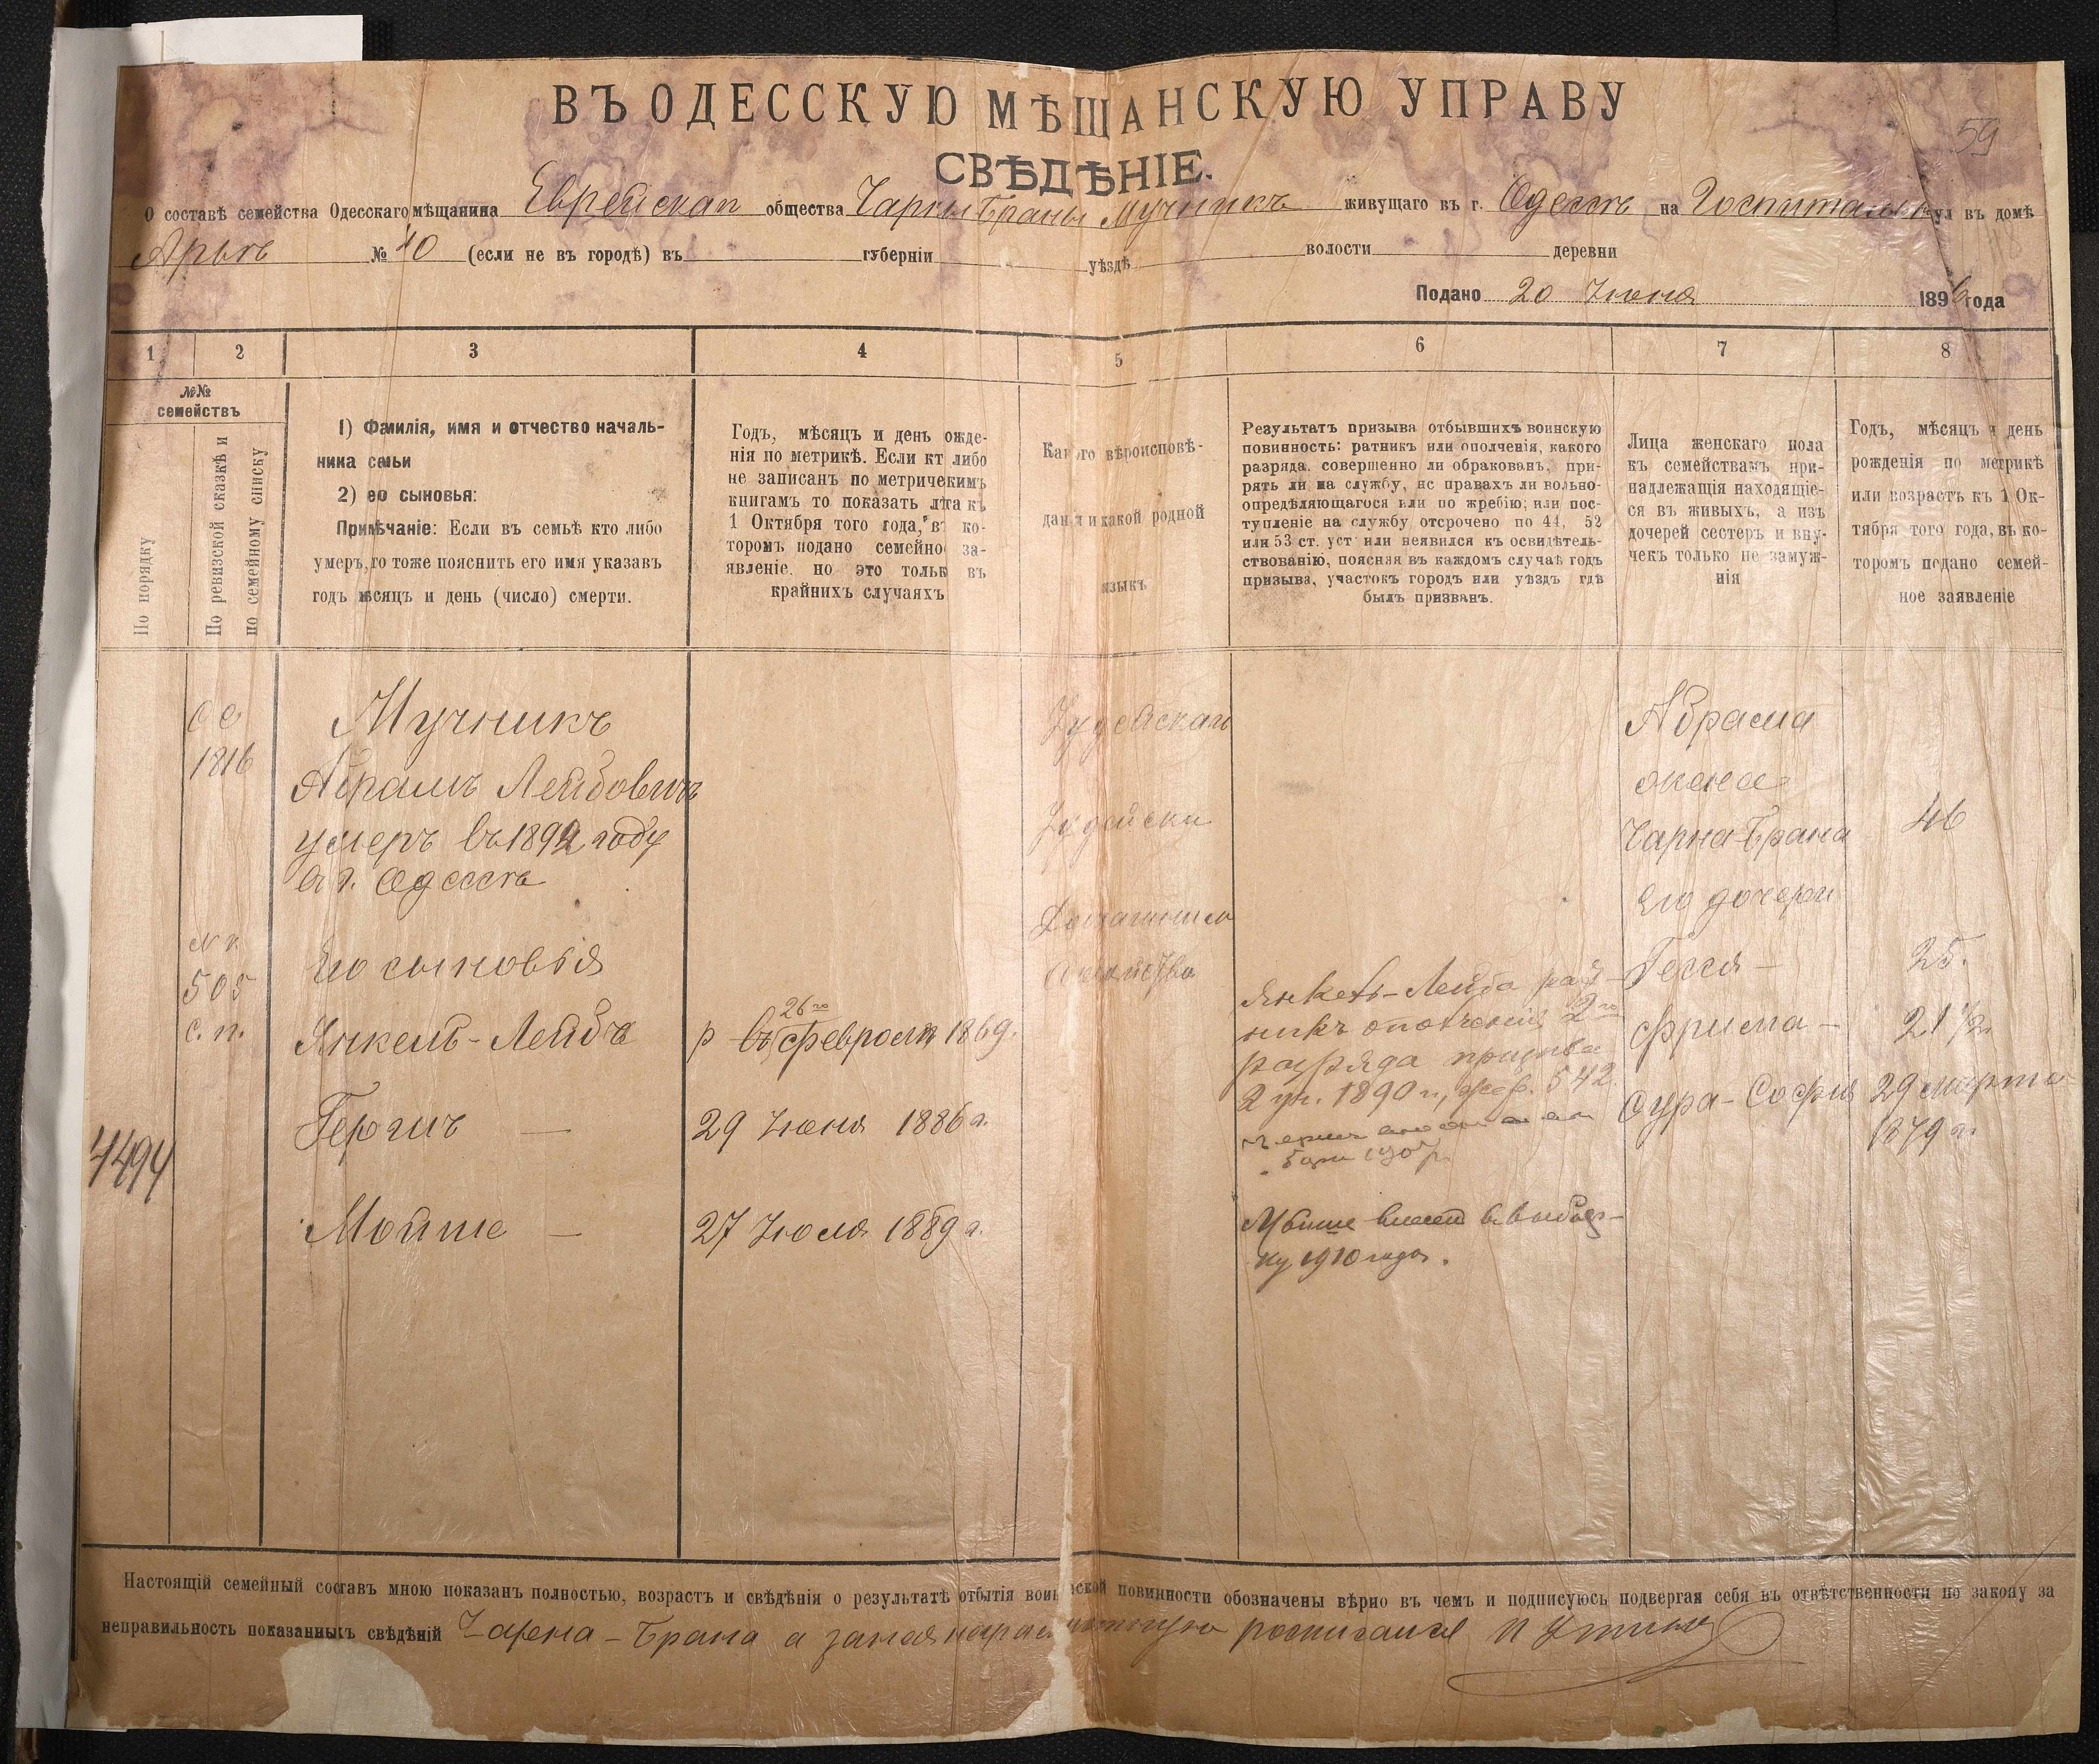 59
ВЪ ОДЕССКУЮ МѢЩАНСКУЮ УПРАВУ
СВѢДѢНІЕ.
О составѣ семейства Одесскаго мѣщанина Еврейскаго общества Чарны Браны Мучникъ живущаго въ г. Одессѣ на Госпитальн ул въ домѣ
№ 40 (если не въ городѣ) въ губерніи уѣздѣ волости деревни
Подано 20 Іюня 1896 года
1 2 3 4 5 6 7 8
№№
семействъ
По порядку
По ревизской сказкѣ и
по семейному списку
1) Фамилія, имя и отчество началь-
ника семьи
2) ео сыновья:
Примѣчаніе: Если въ семьѣ кто либо
умеръ, то тоже пояснить его имя указавъ
годъ мѣсяцъ и день (число) смерти.
Годъ, мѣсяцъ и день ожде-
нія по метрикѣ. Если кт либо
не записанъ по метрическимъ
книгамъ то показать лѣта къ
1 Октября того года, въ ко-
торомъ подано семейно за-
явленіе. но это тольк въ
крайнихъ случаяхъ
Какого вѣроисповѣ-
данія и какой родной
языкъ
Результатъ призыва отбывшихъ воинскую
повинность: ратникъ или ополченія, какого
разряда. совершенно ли обракованъ, при-
рять ли на службу, нс правахъ ли вольно-
опредѣляющагося или по жребію; или пос-
тупленіе на службу отсрочено по 44, 52
или 53 ст. уст или неявился къ освидѣтель-
ствованію, поясняя въ каждомъ случаѣ годъ
призыва, участокъ городъ или уѣздъ гдѣ
былъ призванъ.
Лица женскаго пола
къ семействамъ при-
надлежащія находящіе-
ся въ живыхъ, а изъ
дочерей сестеръ и вну-
чекъ только не замуж-
нія
Годъ, мѣсяцъ и день
рожденія по метрикѣ
или возрастъ къ 1 Ок-
тября того года, въ ко-
торомъ подано семей-
ное заявленіе
4494
1816
505
с. п.
Мучникъ
Абрамъ Лейбовичъ
умеръ въ 1892 году
въ г. Одессѣ
Его сыновья
Янкель-Лейба
Гершъ —
Мойше —
26го
р въ февроля 1869.
29 Іюня 1886 г.
27 Іюля 1889 г.
Іудейскаго
Янкель-Лейба рат-
никъ ополченія 2го
разряда призыва
2 уч. 1890 г., жер. 542
Мойше внесенъ въ выбор-
ку 1910 года.
Абрама
жена
Чарна-Брана
Его дочери
Гесся —
Фрима —
Сура-Софія
46
25.
21 ½
29 марта
1879 г.
Настоящій семейный составъ мною показанъ полностью, возрастъ и свѣдѣнія о результатѣ отбытія воинской повинности обозначены вѣрно въ чемъ и подписуюсь подвергая себя въ отвѣтственности по закону за
неправильность показанныхъ свѣдѣній Чарна-Брана а за неграмотную росписался